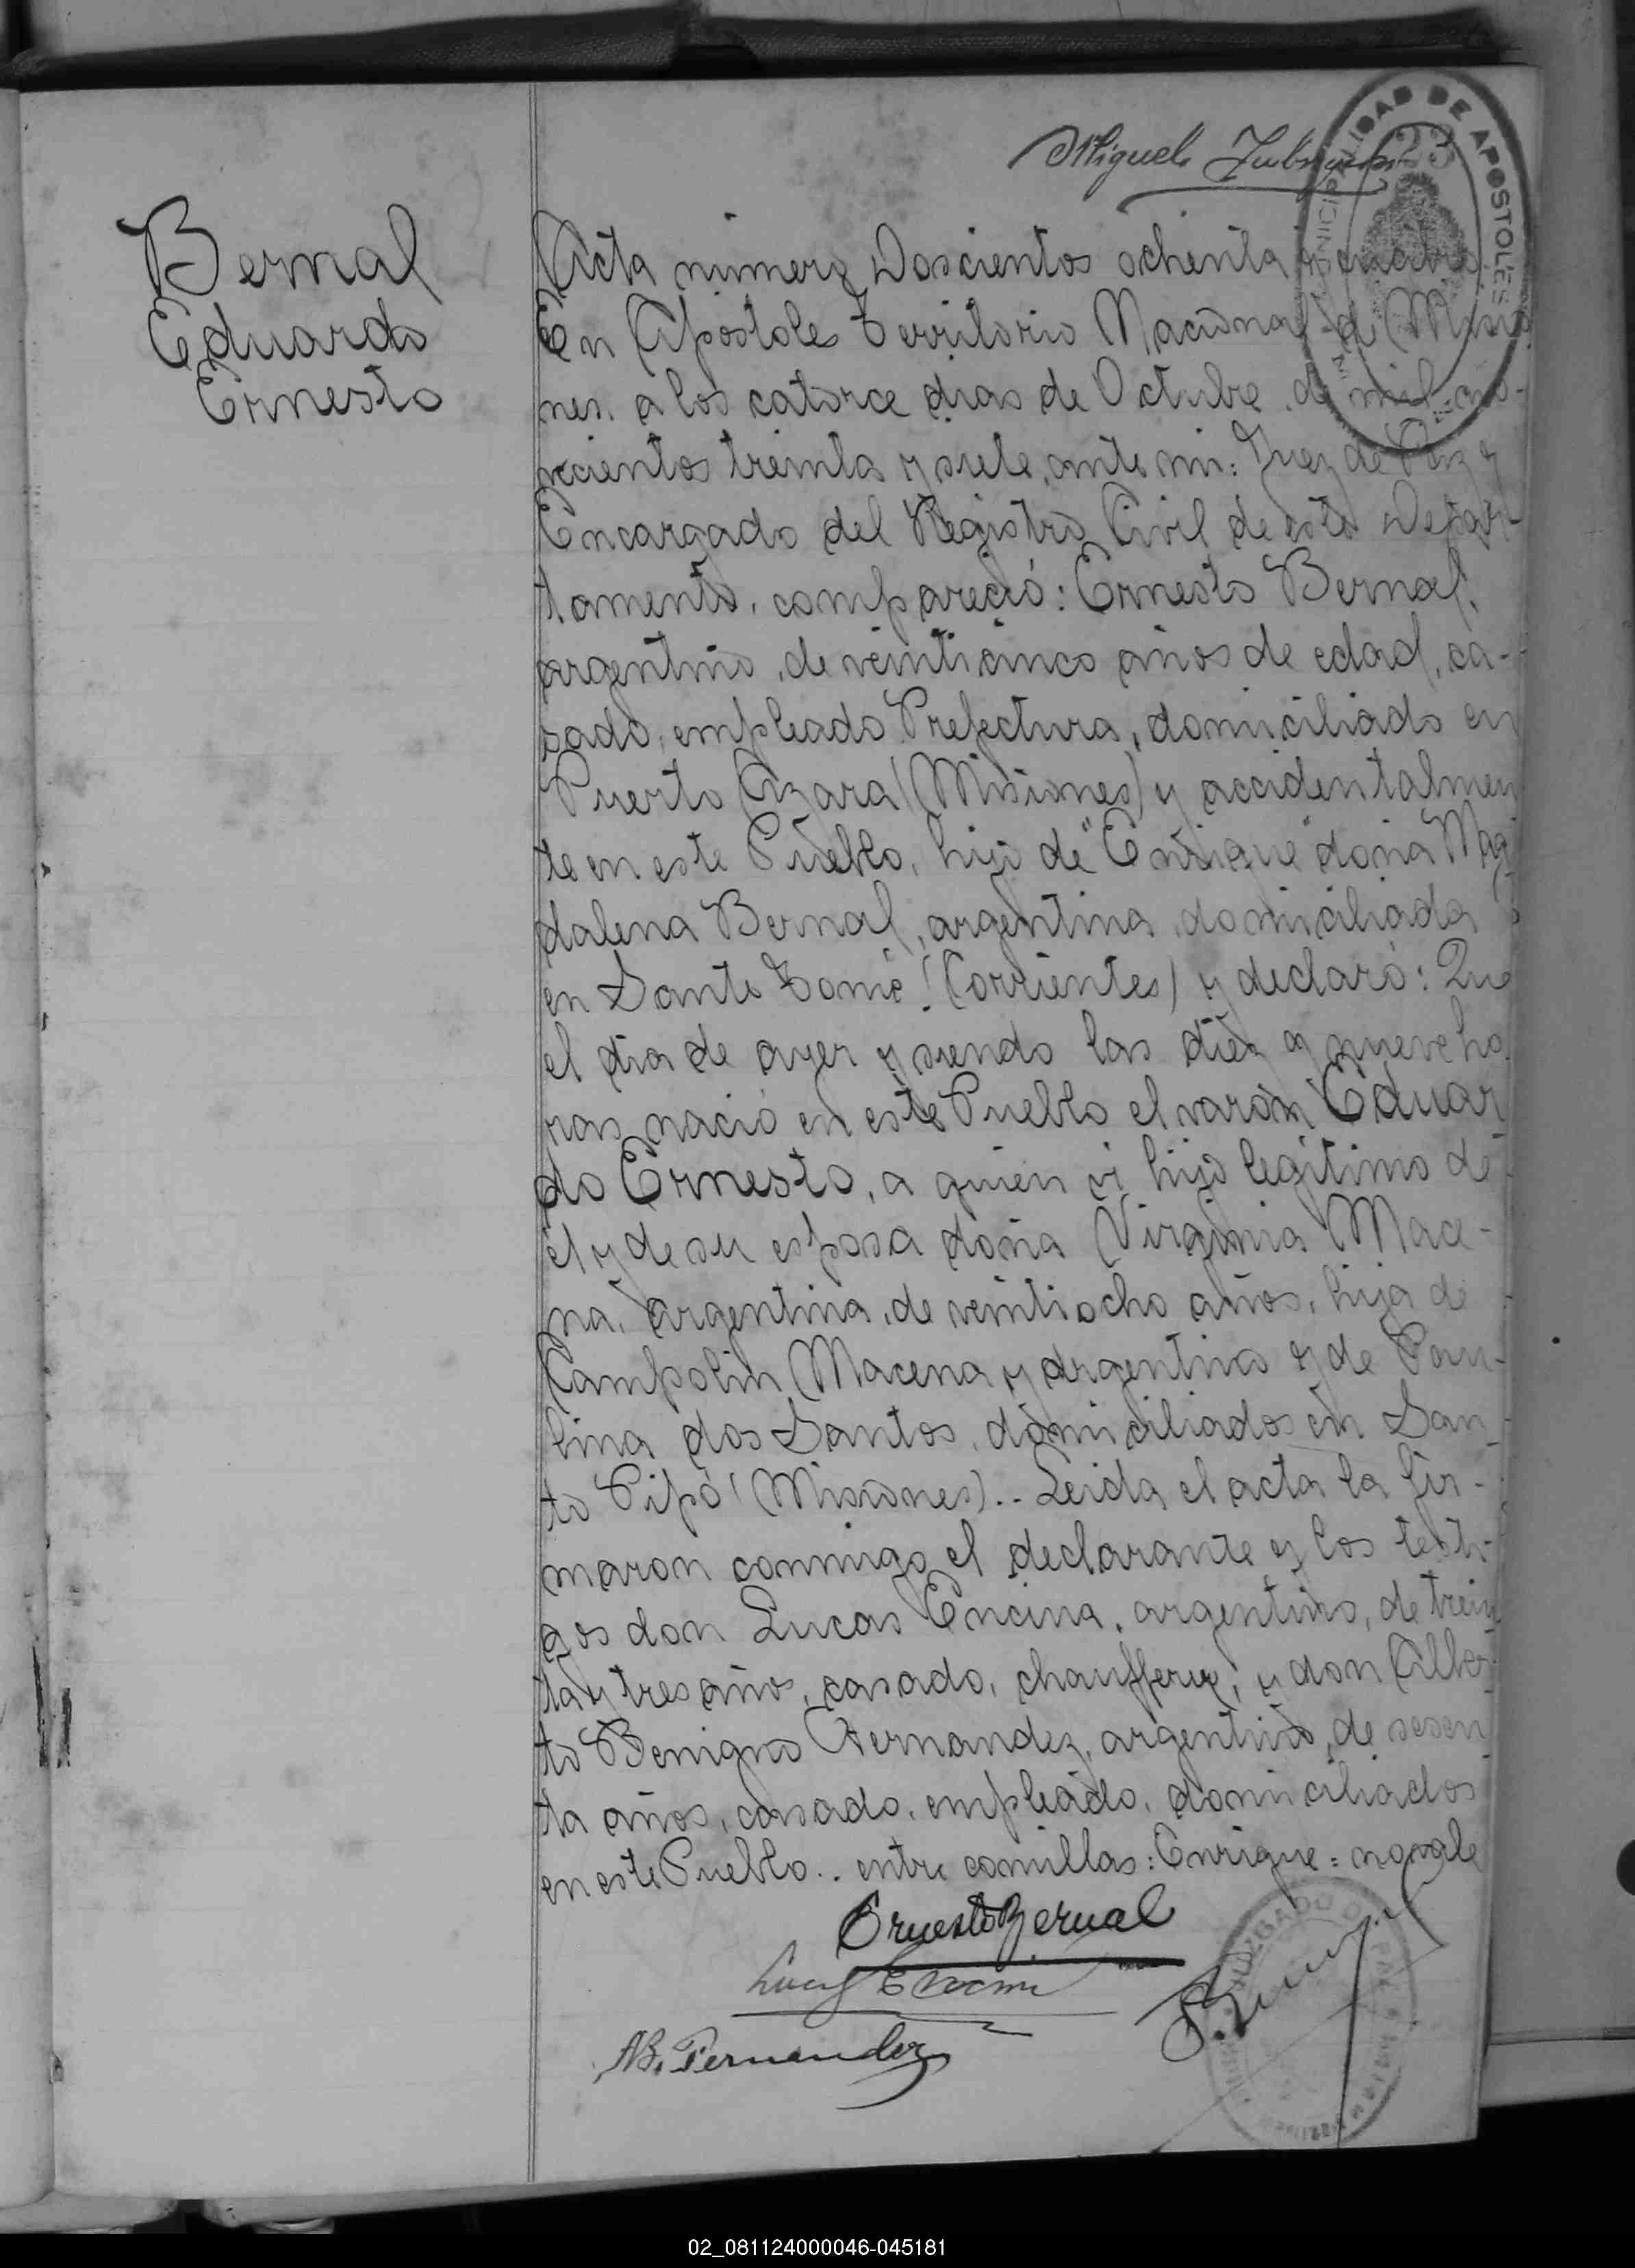 Miguel
MUNICIPALIDAD DE APOSTOLES
23
Bernal
Eduardo
Ernesto
Acta número Doscientos ochenta y cuatro
En Apostoles Territorio Nacional de Misio
nes. a los catorce dias de Octubre de mil no-
vecientos treinta y siete, ante mi: Juez de Paz y
Encargado del Registro Civil de este Depar-
tamento, compareció: Ernesto Bernal,
argentino, de veinticinco años de edad, ca-
sado, empleado Prefectura, domiciliado en
Puerto Azara (Misiones) y accidentalmen
te en este Pueblo, hijo de "Enrique" doña Mag
dalena Bernal, argentina domiciliada
en Santo Tomé (Corrientes) y declaró: Que
el dia de ayer y siendo las diez y nueve ho
ras nació en este Pueblo el varón Eduar
do Ernesto, a quien vi hijo legitimo de
él y de su esposa doña Virginia Mace-
na, argentina, de veintiocho años, hija de
Campolin Macena y argentino y de Pau-
lina dos Santos, domiciliados en San
to Pipó (Misiones).. Leida el acta la fir-
maron conmigo el declarante y los testi-
gos don Lucas Encina, argentino, de trein
ta y tres años, casado, chauffeur, y don Alber
to Benigno Fernandez, argentino, de sesen
ta años, casado, empleado, domiciliados
en este Pueblo.. entre comillas: Enrique = no vale
Ernesto Bernal
Lucas Encina
AB. Fernandez
JUZGADO DE PAZ
02_081124000046-045181